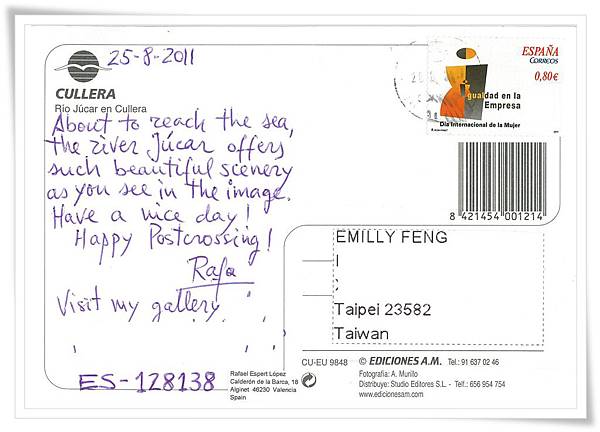 25-8-2011
CULLERA
Río Júcar en Cullera
About to reach the sea,
the river Júcar offers
such beautiful scenery
as you see in the image.
Have a nice day!
Happy Postcrossing!
Rafa
Visit my gallery
ES-128138
Rafael Espert López
Calderón de la Barca, 18
Alginet 46230 Valencia
Spain
ESPAÑA
CORREOS
0,80€
Igualdad en la
Empresa
Día Internacional de la Mujer
8 421454 001214
EMILLY FENG
Taipei 23582
Taiwan
CU-EU 9848
© EDICIONES A.M. Tel.: 91 637 02 46
Fotografía: A. Murillo
Distribuye: Studio Editores S.L. - Tel.: 656 954 754
www.edicionesam.com